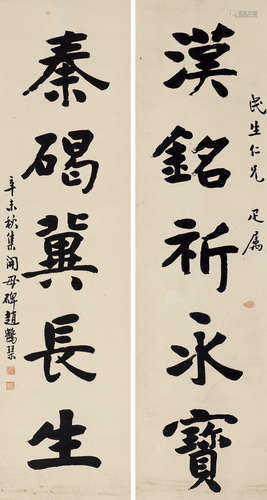 民生仁兄 疋属
漢銘祈永寶
秦碣冀長生
辛未秋集開母碑趙鶴琴